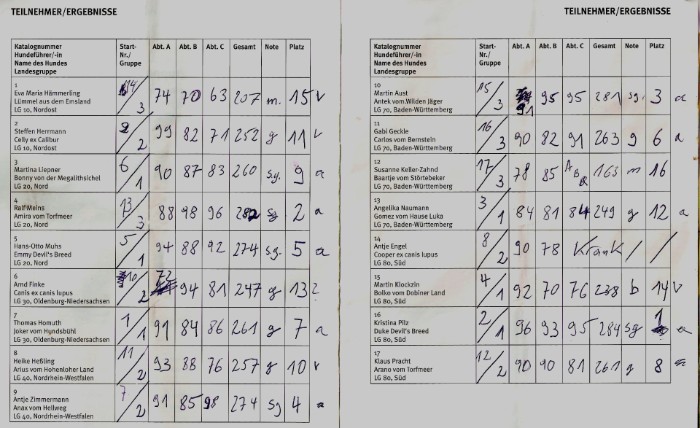 TEILNEHMER/ERGEBNISSE
Katalognummer
Hundeführer/-in
Name des Hundes
Landesgruppe
Start-
Nr./
Gruppe
Abt. A Abt. B Abt. C Gesamt Note Platz
1
Eva Maria Hämmerling
Lümmel aus dem Emsland
LG 10, Nordost
14/3 74 70 63 207 m. 15 v
2
Steffen Herrmann
Celly ex Calibur
LG 10, Nordost
9/2 99 82 71 252 g 11 v
3
Martina Liepner
Benny von der Megalithsichel
LG 20, Nord
6/1 90 87 83 260 sg. 9 a
4
Ralf Meins
Amira vom Torfmeer
LG 20, Nord
13/3 88 98 96 282 sg 2 a
5
Hans-Otto Muhs
Emmy Devil's Breed
LG 20, Nord
5/1 94 88 92 274 sg. 5 a
6
Arnd Finke
Canis ex canis lupus
LG 30, Oldenburg-Niedersachsen
10/2 72 94 81 247 g 13
7
Thomas Homuth
Joker vom Hyndsbühl
LG 30, Oldenburg-Niedersachsen
1/1 91 84 86 261 g 7 a
8
Heike Heßling
Arius vom Hohenloher Land
LG 40, Nordrhein-Westfalen
11/2 93 88 76 257 g 10 v
9
Antje Zimmermann
Anax vom Hellweg
LG 40, Nordrhein-Westfalen
7/2 91 85 98 274 sg 4 a
TEILNEHMER/ERGEBNISSE
Katalognummer
Hundeführer/-in
Name des Hundes
Landesgruppe
Start-
Nr./
Gruppe
Abt. A Abt. B Abt. C Gesamt Note Platz
10
Martin Aust
Antek vom Wilden Jäger
LG 70, Baden-Württemberg
15/3 91 95 95 281 sg. 3 a
11
Gabi Geckle
Carlos vom Bernstein
LG 70, Baden-Württemberg
16/3 90 82 91 263 g 6 a
12
Susanne Keller-Zahnd
Baartje vom Störtebeker
LG 70, Baden-Württemberg
17/3 78 85 ABR 163 m 16
13
Angelika Naumann
Gomez vom Hause Luka
LG 70, Baden-Württemberg
3/1 84 81 84 249 g 12 a
14
Antje Engel
Cooper ex canis lupus
LG 80, Süd
8/2 90 78 Krank / /
15
Martin Klockzin
Bolko vom Dobiner Land
LG 80, Süd
4/1 92 70 76 238 b 14 v
16
Kristina Pilz
Duke Devil's Breed
LG 80, Süd
2/1 96 93 95 284 sg 1 a
17
Klaus Pracht
Arano vom Torfmeer
LG 80, Süd
12/2 90 90 81 261 g 8